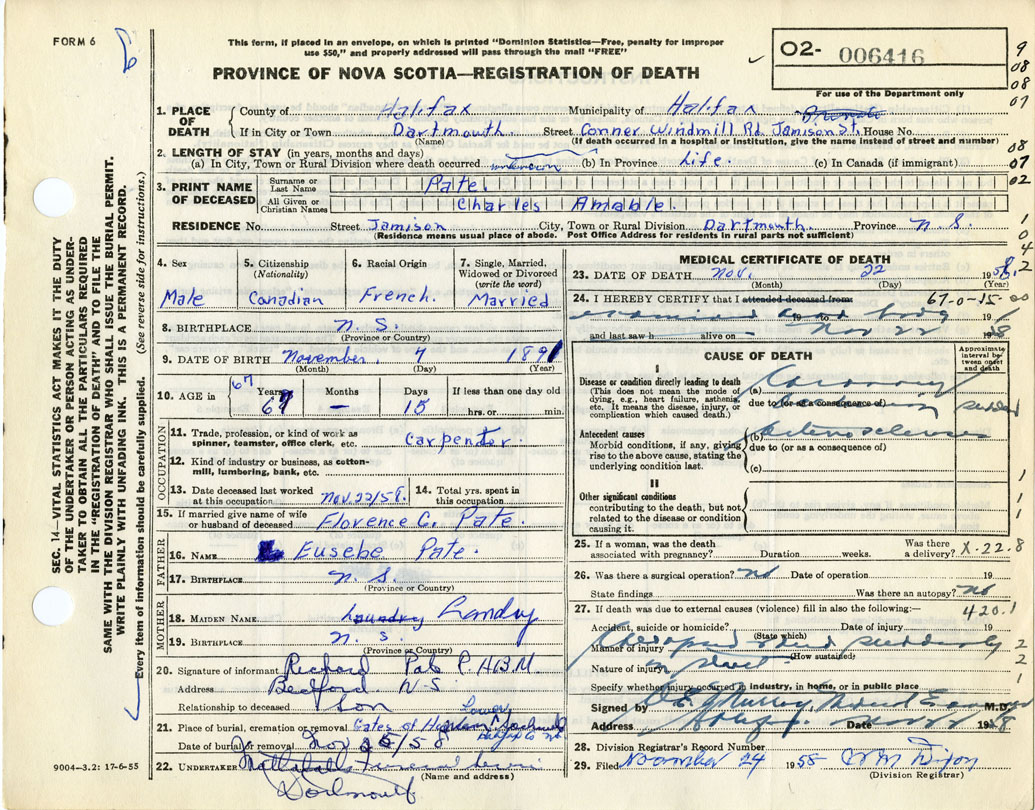 FORM 6
This form, if placed in an envelope, on which is printed "Dominion Statistics—Free, penalty for improper
use $50," and properly addressed will pass through the mail "FREE"
PROVINCE OF NOVA SCOTIA—REGISTRATION OF DEATH
O2- 006416
For use of the Department only
9
08
08
07
08
07
02
1. PLACE OF DEATH
County of Halifax Municipality of Halifax
If in City or Town Dartmouth Street Conner Windmill Rd. Jamison St. House No.
(Name) (If death occurred in a hospital or institution, give the name instead of street and number)
2. LENGTH OF STAY (in years, months and days)
(a) In City, Town or Rural Division where death occurred unknown (b) In Province Life. (c) In Canada (if immigrant)
3. PRINT NAME OF DECEASED
Surname or Last Name Pate.
All Given or Christian Names Charles Amable.
RESIDENCE No. Street Jamison City, Town or Rural Division Dartmouth. Province N S.
(Residence means usual place of abode. Post Office Address for residents in rural parts not sufficient)
SEC. 14—VITAL STATISTICS ACT MAKES IT THE DUTY
OF THE UNDERTAKER OR PERSON ACTING AS UNDER-
TAKER TO OBTAIN ALL THE PARTICULARS REQUIRED
IN THE "REGISTRATION OF DEATH" AND TO FILE THE
SAME WITH THE DIVISION REGISTRAR WHO SHALL ISSUE THE BURIAL PERMIT.
WRITE PLAINLY WITH UNFADING INK. THIS IS A PERMANENT RECORD.
Every item of information should be carefully supplied. (See reverse side for instructions.)
4. Sex
Male
5. Citizenship
(Nationality)
Canadian
6. Racial Origin
French.
7. Single, Married,
Widowed or Divorced
(write the word)
Married
8. BIRTHPLACE N. S.
(Province or Country)
9. DATE OF BIRTH November 7 1891
(Month) (Day) (Year)
67
10. AGE in Years Months Days If less than one day old
67 — 15 hrs. or min.
OCCUPATION
11. Trade, profession, or kind of work as
spinner, teamster, office clerk, etc. Carpenter.
12. Kind of industry or business, as cotton-
mill, lumbering, bank, etc.
13. Date deceased last worked
at this occupation Nov. 22/58.
14. Total yrs. spent in
this occupation
15. If married give name of wife
or husband of deceased Florence C. Pate.
FATHER
16. NAME Eusebe Pate.
17. BIRTHPLACE N. S.
(Province or Country)
MOTHER
18. MAIDEN NAME Laundry Landry
19. BIRTHPLACE N. S.
(Province or Country)
20. Signature of informant Richard Pate
Address Bedford N.S.
Relationship to deceased Son
21. Place of burial, cremation or removal Gates of Heaven Lower Sackville
Halifax Co. N.S.
Date of burial or removal Nov 25/58
22. UNDERTAKER Funeral
(Name and address)
Dartmouth
9004—3.2: 17-6-55
MEDICAL CERTIFICATE OF DEATH
23. DATE OF DEATH Nov. 22 1958
(Month) (Day) (Year)
24. I HEREBY CERTIFY that I attended deceased from 67-0-15-00
examined dead body 19
and last saw h alive on Nov 22 1958
CAUSE OF DEATH
Approximate interval between onset and death
I
Disease or condition directly leading to death
(This does not mean the mode of
dying, e.g., heart failure, asthma,
etc. It means the disease, injury, or
complication which caused death.)
(a) Coronary
due to (or as a consequence of) sudden
Antecedent causes
Morbid conditions, if any, giving
rise to the above cause, stating the
underlying condition last.
(b)
due to (or as a consequence of)
(c)
II
Other significant conditions
contributing to the death, but not
related to the disease or condition
causing it.
25. If a woman, was the death
associated with pregnancy? Duration weeks. Was there
a delivery? X-22.8
26. Was there a surgical operation? No Date of operation 19
State findings Was there an autopsy? No
27. If death was due to external causes (violence) fill in also the following:— 420.1
Accident, suicide or homicide? Date of injury 19
(State which)
Manner of injury dropped dead suddenly
(How sustained)
Nature of injury in street
Specify whether injury occurred in industry, in home, or in public place
Signed by M.D.
Address Halifax Date Nov 22 1958
28. Division Registrar's Record Number
29. Filed November 24 1958
(Division Registrar)